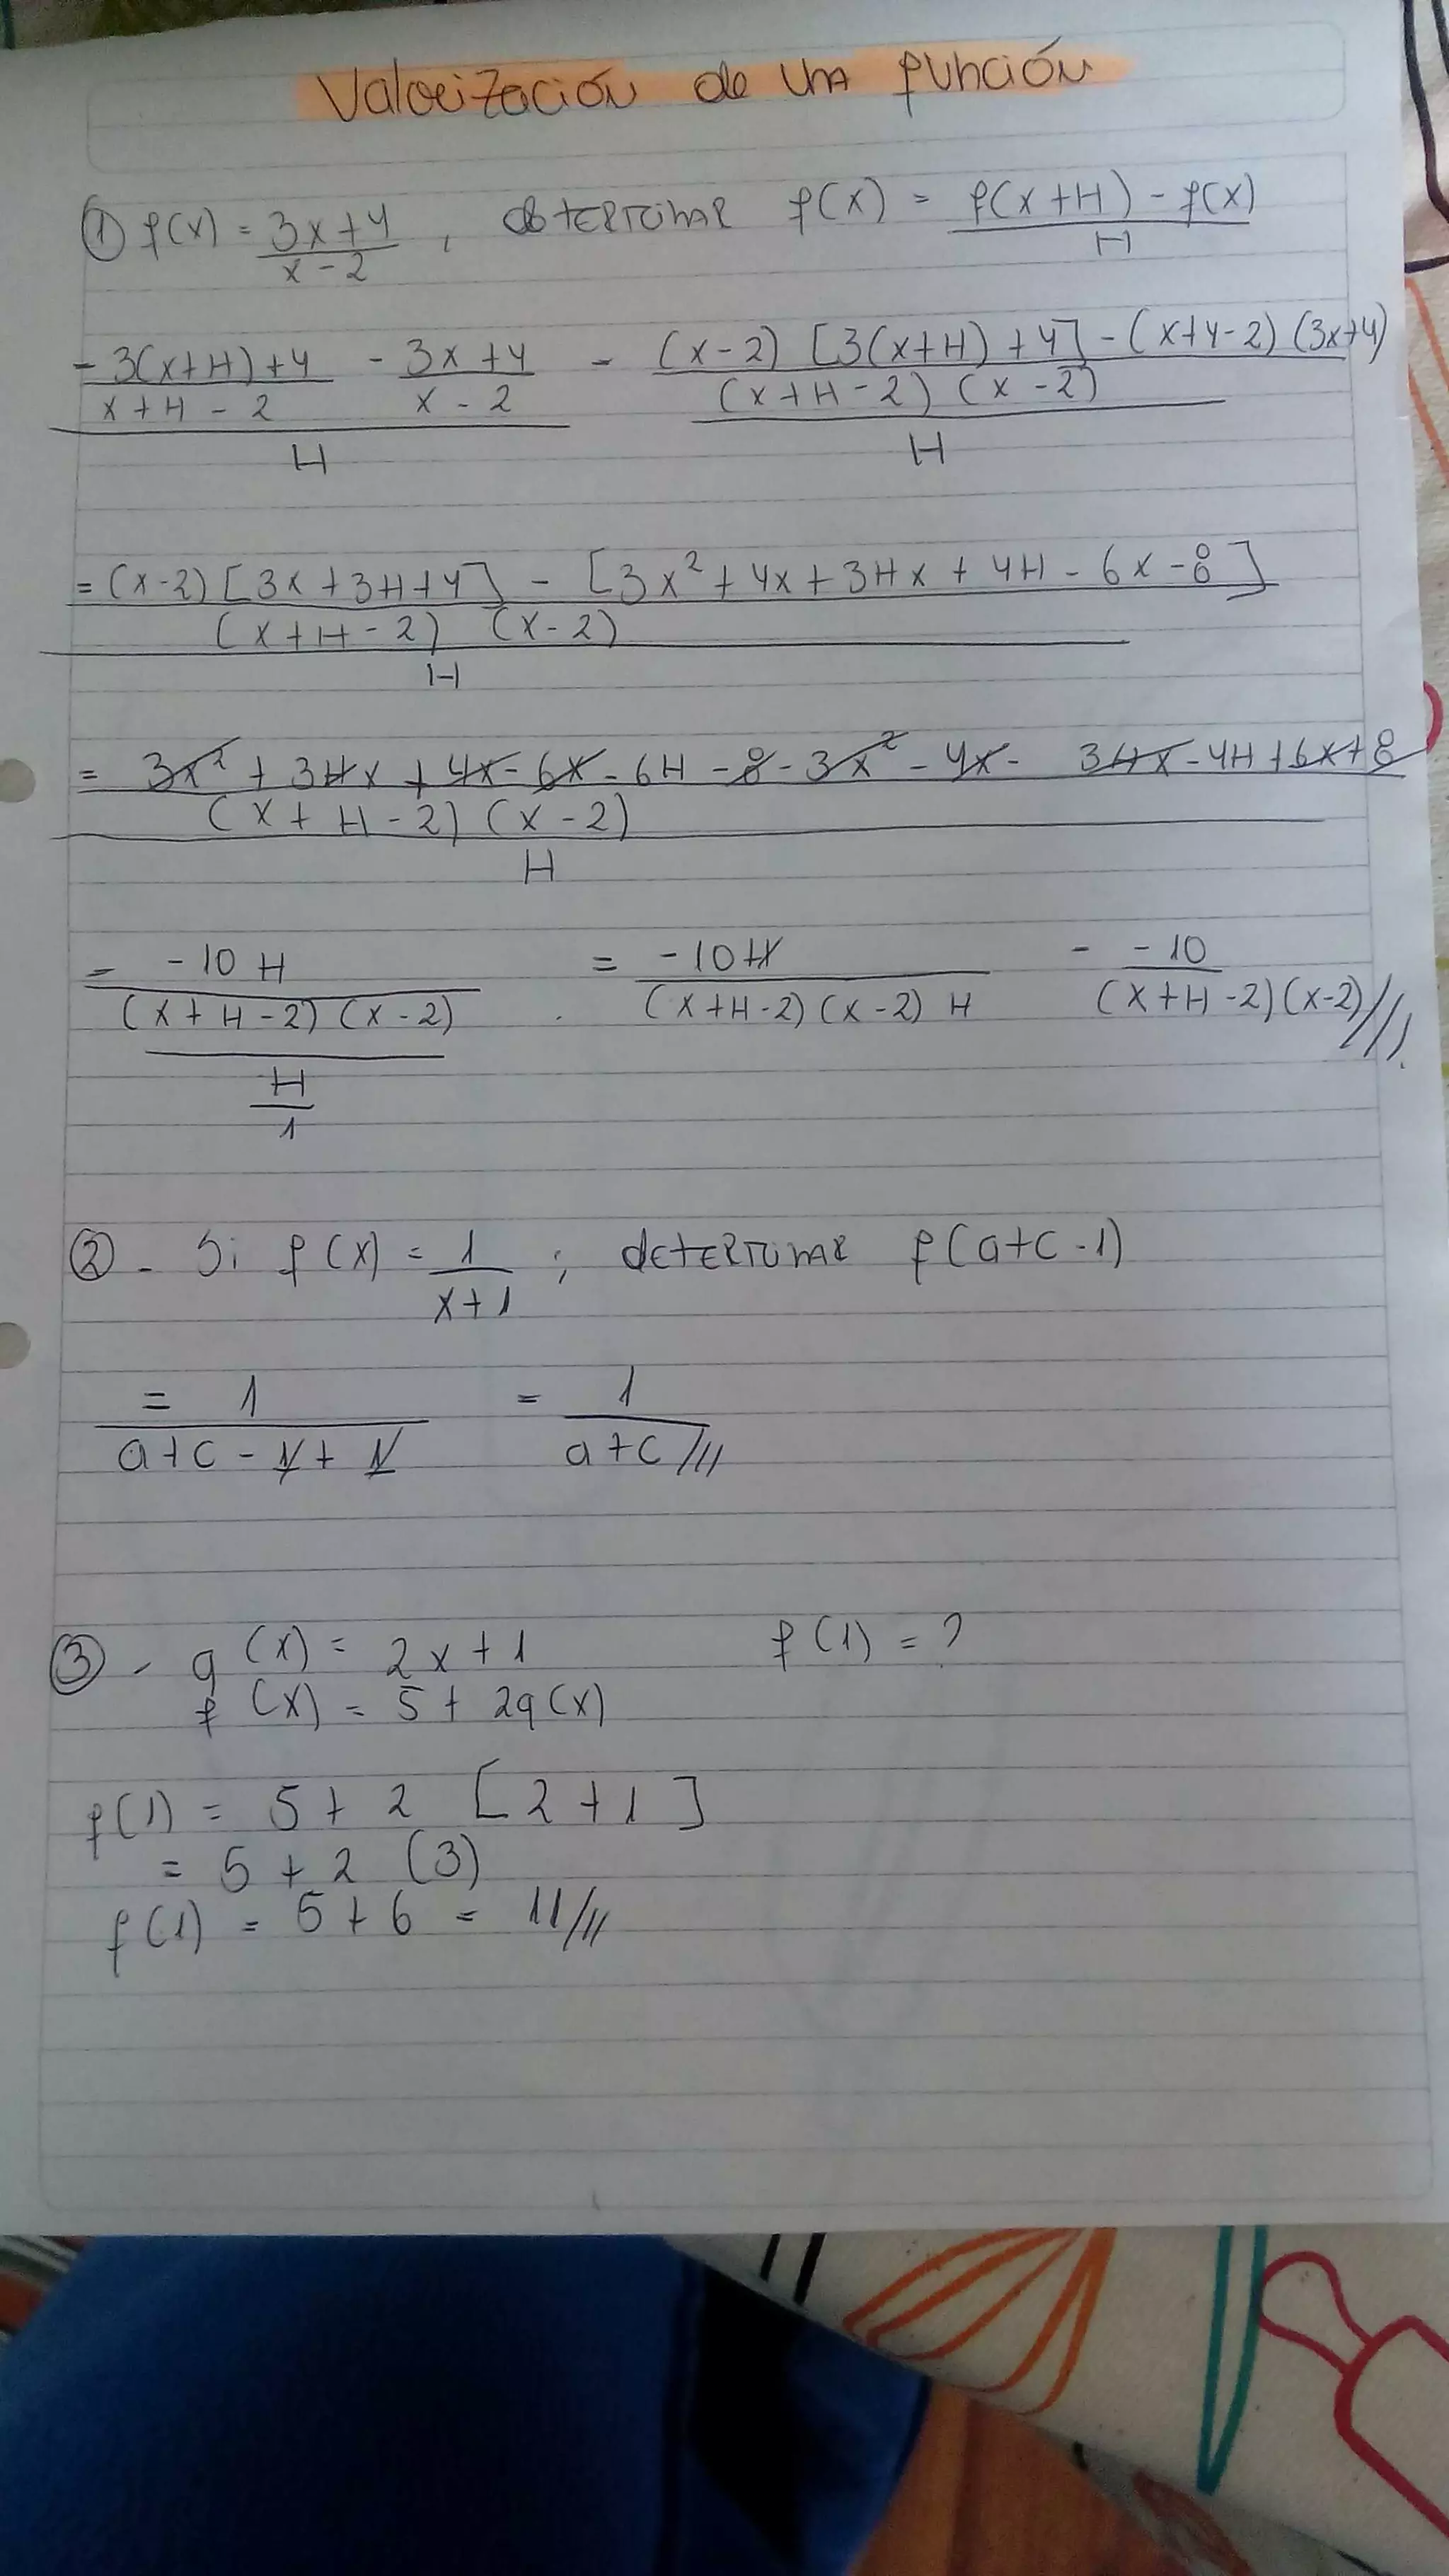 Valorización de una función
① f(x) = 3x+4 / x-2 , determinar f(x) = f(x+H) - f(x) / H
= 3(x+H)+4 / x+H-2 - 3x+4 / x-2 / H = (x-2) [3(x+H)+4] - (x+4-2) (3x+4) / (x+H-2) (x-2) / H
= (x-2) [3x+3H+4] - [3x²+4x+3Hx+4H-6x-8] / (x+H-2) (x-2) / H
= 3x² + 3Hx + 4x - 6x - 6H - 8 - 3x² - 4x - 3Hx - 4H + 6x + 8 / (x+H-2) (x-2) / H
= -10H / (x+H-2) (x-2) / H / 1 = -10H / (x+H-2) (x-2) H - -10 / (x+H-2)(x-2)//
② - Si f(x) = 1 / x+1 ; determinar f(a+c-1)
= 1 / a+c-1+1 = 1 / a+c //
③ - g(x) = 2x+1 f(1) = ?
f(x) = 5 + 2g(x)
f(1) = 5 + 2 [2+1]
= 5 + 2 (3)
f(1) = 5 + 6 = 11 //